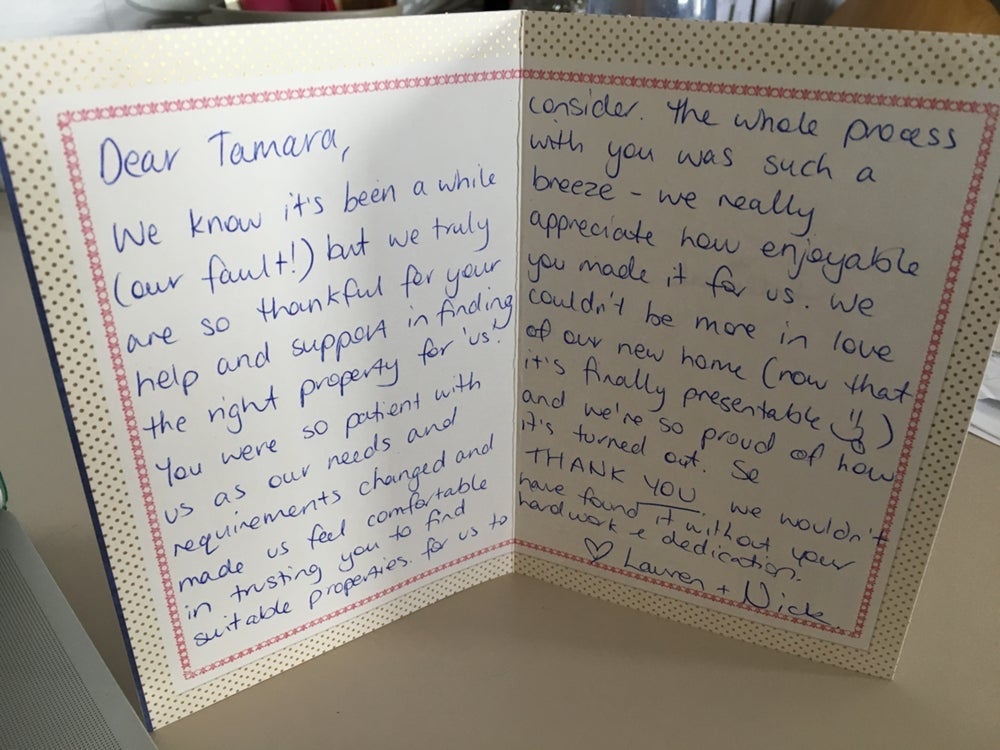 Dear Tamara,
We know it's been a while
(our fault!) but we truly
are so thankful for your
help and support in finding
the right property for 'us'.
You were so patient with
us as our needs and
requirements changed and
made us feel comfortable
in trusting you to find
suitable properties. for us to
consider. The whole process
with you was such a
breeze - we really
appreciate how enjoyable
you made it for us. We
couldn't be more in love
of our new home (now that
it's finally presentable)
and we're so proud of how
it's turned out. So
THANK YOU. we wouldn't
have found it without your
hardwork & dedication.
♡ Lauren + Nick